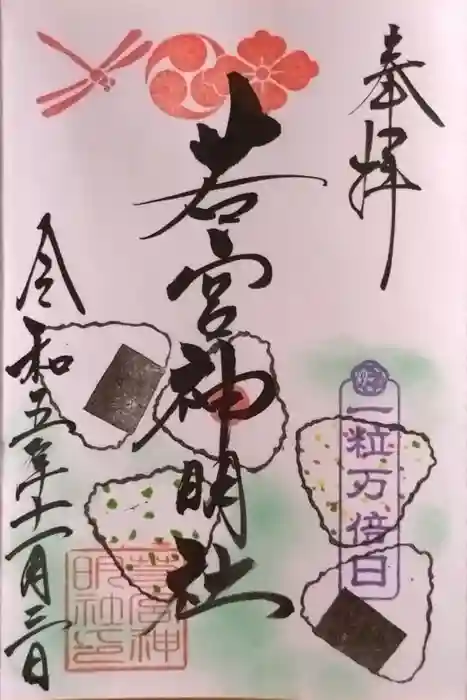 奉拝
若宮神明社
一粒万倍日
令和五年十一月三日
若宮神
明社印